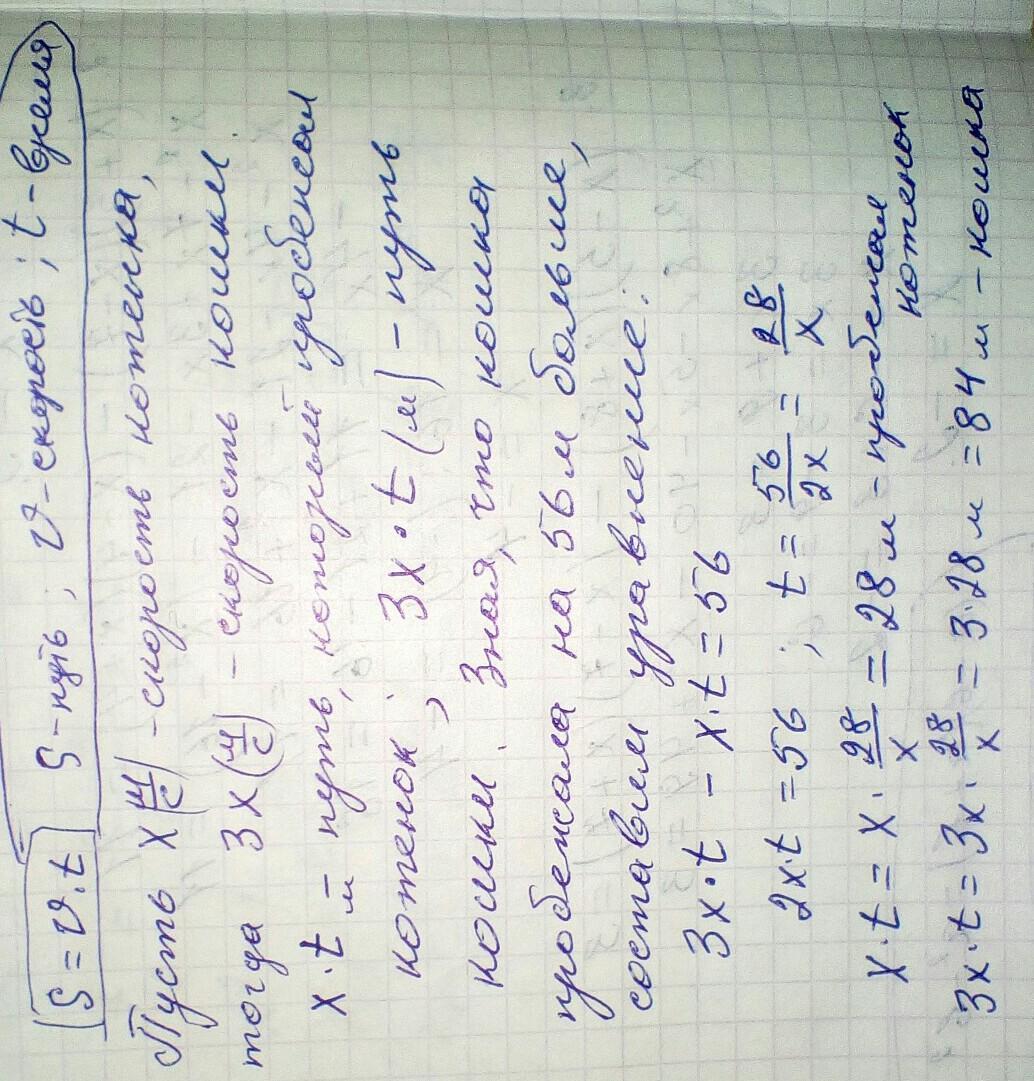 S = v·t S - путь ; v - скорость ; t - время
Пусть x (м/с) - скорость котенка,
тогда 3x (м/с) - скорость кошки.
x·t м - путь, который пробежал
котенок, 3x·t (м) - путь
кошки. Зная, что кошка
пробежала на 56 м больше,
составим уравнение:
3x·t - x·t = 56
2x·t = 56 ; t = 56/2x = 28/x
x·t = x · 28/x = 28 м - пробежал котенок
3x·t = 3x · 28/x = 3·28 м = 84 м - кошка